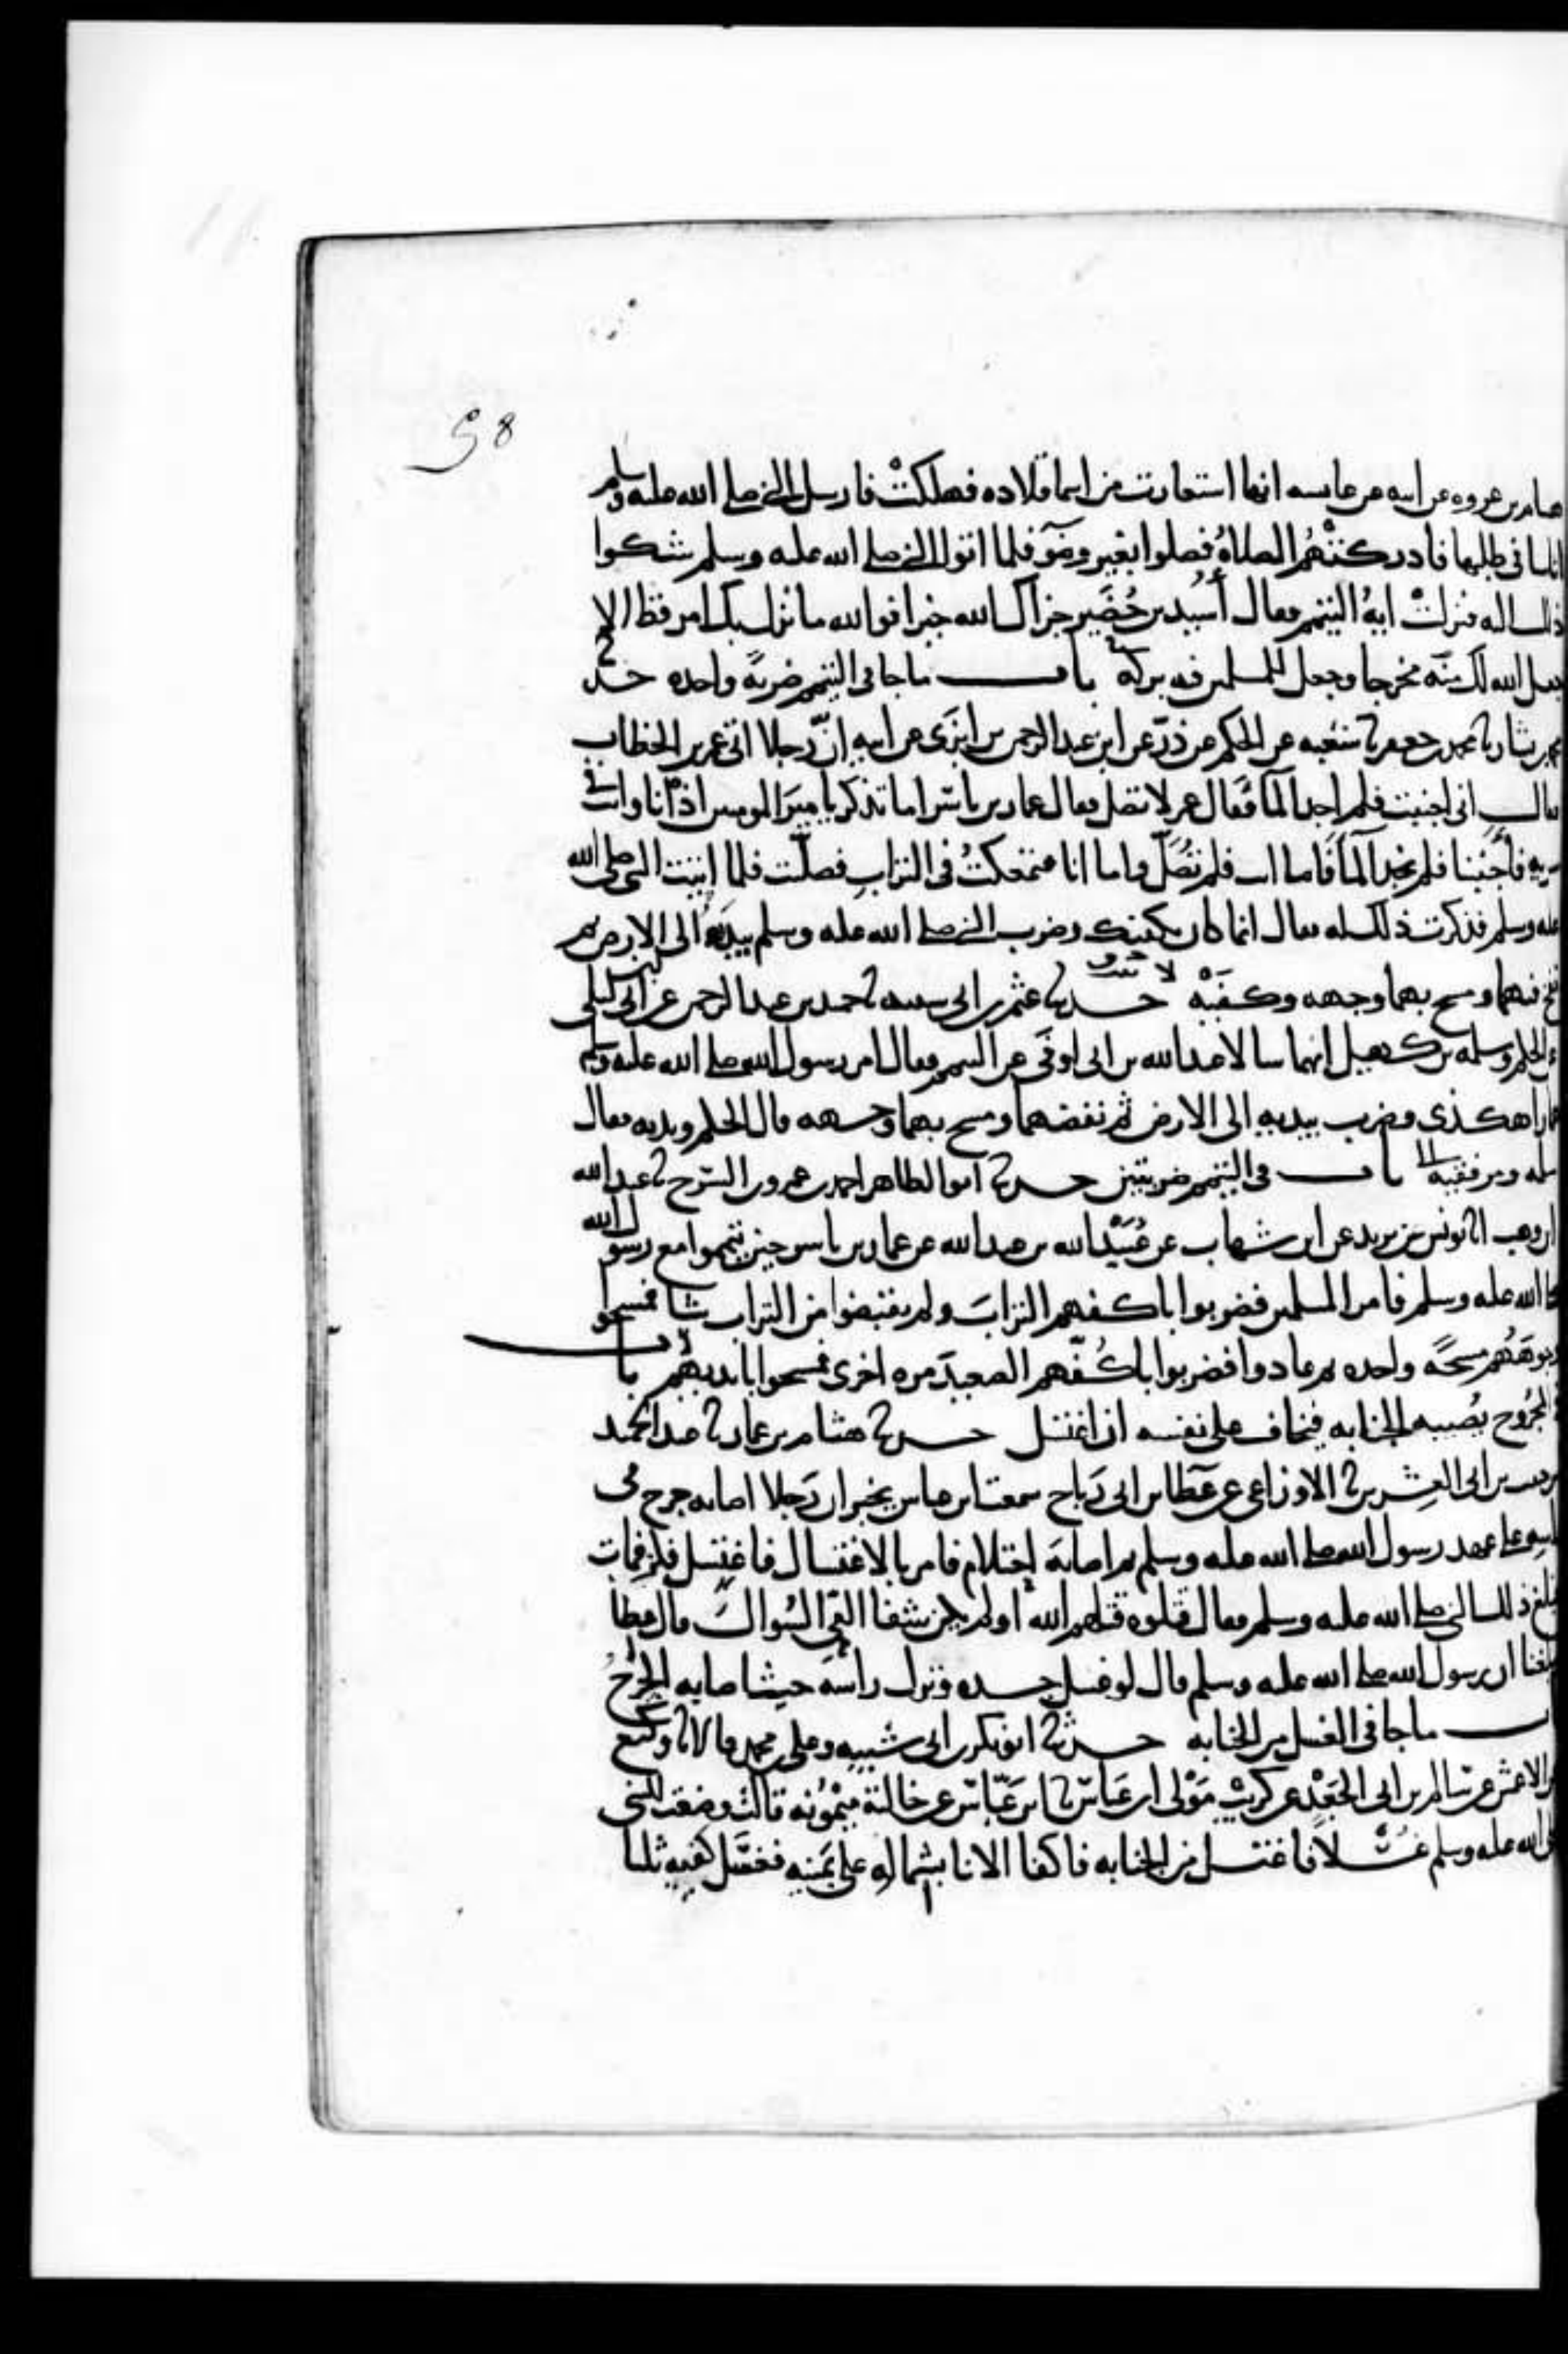 58
هشام بن عروه عن ابيه عن عايشه انها استعارت من اسما قلاده فهلكتْ فارسل النبي صلى الله عليه وسلم
اناسا في طلبها فادركتْهُم الصلاةُ فصلوا بغير وضوٓ فلما اتوا النبي صلى الله عليه وسلم شكوا
ذلك اليه فنزلتْ ايةُ التيمم فقال أُسَيد بن حُضَير جزاك الله خيرا فوالله ما نزل بك امر قط الا
جعل الله لك منه مخرجا وجعل للمسلمين فيه بركة باب ما جا في التيمم ضربةً واحده حدثنا
محمد بن بشار ثنا محمد بن جعفر ثنا شعبه عن الحكم عن ذرّ عن ابن عبد الرحمن بن ابزَى عن ابيه انّ رجلا اتى عمر بن الخطاب
فقال اني اجنبت فلم اجد المآ فقال عمر لا تصل فقال عمار بن ياسر اما تذكر يا ميرَ المومنين اذ انا وانت في
سريه فأَجْنَبنا فلم نجد المآ فاما انت فلم تُصَلِّ واما انا فتمعكتُ في الترابِ فصلّيت فلما اتيت النبي صلى الله
عليه وسلم فذكرت ذلك له فقال انما كان يكفيك وضرب النبي صلى الله عليه وسلم بيدَيه الى الارض ثم
نفخ فيهما ومسح بهما وجهه وكفَيْه حدثنا عثمن بن ابي شيبه ثنا حميد بن عبد الرحمن عن ابن ابي ليلى
عن الحكم وسلمه بن كهيل انهما سالا عبد الله بن ابي اوفَى عن التيمم فقال امر رسول الله صلى الله عليه وسلم
عمارا هكذى وضرب بيديهِ الى الارض ثم نفضهما ومسح بهما وجهه قال الحكم ويديه وقال
سلمه ومرفقيه باب في التيمم ضربتين حدثنا ابو الطاهر احمد بن عمرو بن السّرح ثنا عبد الله
ابن وهب انا يونس بن يزيد عن ابن شهاب عن عُبَيْد الله بن عبد الله عن عمار بن ياسر حين تيمموا مع رسول الله
صلى الله عليه وسلم فامر المسلمين فضربوا باكفهم الترابَ ولم يقبضوا من التراب شيا فمسحوا
بوجوهَهُم مسحةً واحده ثم عادوا فضربوا باكُفّهم الصعيدَ مره اخرى فمسحوا بايديهُم باب
المجرُوح تُصيبه الجنابه فيخاف على نفسه ان اغتسل حدثنا هشام بن عمار ثنا عبد الحميد
بن حبيب بن ابي العِشرين ثنا الاوزاعي عن عَطا بن ابي رَباح سمعت ابن عباس يخبر ان رَجلا اصابه جرح في
راسه على عهد رسول الله صلى الله عليه وسلم ثم اصابهَ احتلام فامر بالاغتسال فاغتسل فكز فمات
فبلغ ذلك النبي صلى الله عليه وسلم فقال قتلوه قتلهم الله اولم يكن شفا العي السُوال قال عطا
وبلغنا ان رسول الله صلى الله عليه وسلم قال لو غسل جسده وترك راسَه حيث اصابه الجرحُ
باب ما جا في الغسل من الجنابه حدثنا ابو بكر بن ابي شيبه وعلي بن محمد قالا ثنا وكيع
عن الاعمش عن سالم بن ابي الجَعْد عن كريب مَوْلى ابن عَباس ثنا ابن عَبّاس عن خالته ميْمُونه قالت وضعت للنبي
صلى الله عليه وسلم غُسلاً فاغتسل من الجنابه فاكفا الانا بشمالهِ على يَمينه فغسَل كفيه ثلثا